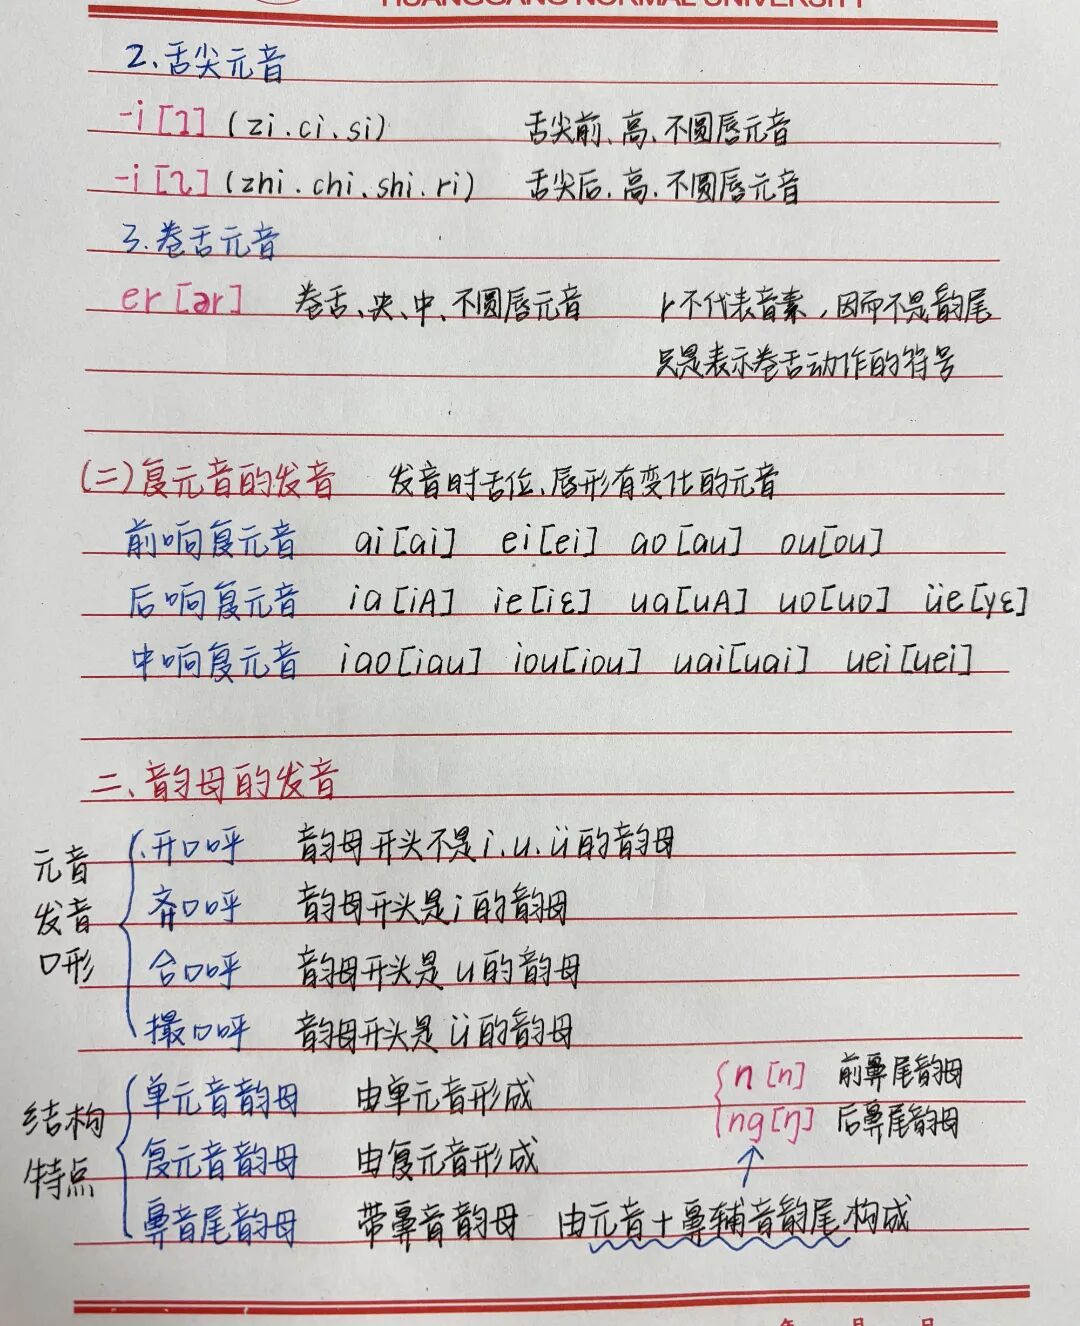 HUANGGANG NORMAL UNIVERSITY
2.舌尖元音
-i [ɿ] (zi.ci.si) 舌尖前、高、不圆唇元音
-i [ʅ] (zhi.chi.shi.ri) 舌尖后、高、不圆唇元音
3.卷舌元音
er [ər] 卷舌、央、中、不圆唇元音 r不代表音素,因而不是韵尾
只是表示卷舌动作的符号
(二)复元音的发音 发音时舌位、唇形有变化的元音
前响复元音 ai[ai] ei[ei] ao[au] ou[ou]
后响复元音 ia[iA] ie[iε] ua[uA] uo[uo] üe[yε]
中响复元音 iao[iau] iou[iou] uai[uai] uei[uei]
二、韵母的发音
元音发音口形
开口呼 韵母开头不是i.u.ü的韵母
齐口呼 韵母开头是i的韵母
合口呼 韵母开头是u的韵母
撮口呼 韵母开头是ü的韵母
结构特点
单元音韵母 由单元音形成
复元音韵母 由复元音形成
鼻音尾韵母 带鼻音韵母 由元音+鼻辅音韵尾构成
n [n] 前鼻尾韵母
ng[ŋ] 后鼻尾韵母
年 月 日